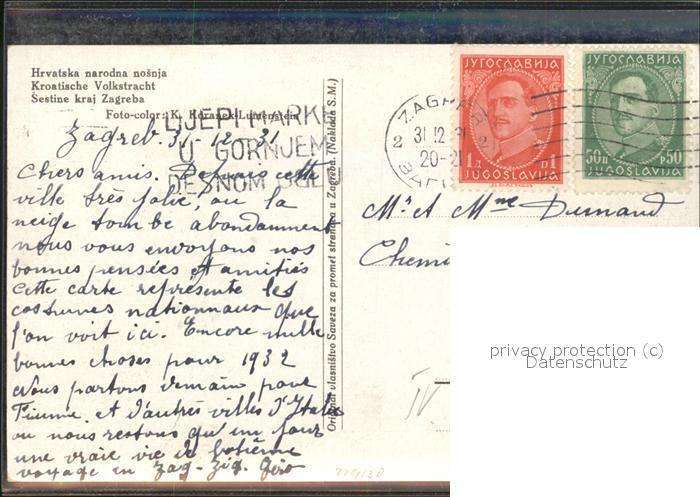 Hrvatska narodna nošnja
Kroatische Volkstracht
Šestine kraj Zagreba
Foto-color: K. Koranek-Lumenstein
LIJEPI MARKE
U GORNJEM
DESNOM UGLU
Zagreb. 31-12-31
Chers amis. Depuis cette
ville très jolie, ou la
neige tombe abondamment
nous vous envoyons nos
bonnes pensées et amitiés
Cette carte représente les
costumes nationnaux que
l'on voit ici. Encore mille
bonnes choses pour 1932
Nous partons demain pour
Fiume et d'autres villes d'Italie
ou nous restons qu'un jour
une vraie vie de bohème
voyage en zag-zig.
Original vlasništvo Saveza za promet stranaca u Zagrebu. (Naklada S. M.)
ZAGREB
2 31.12.31 2
20-21
ЈУГОСЛАВИЈА
1 Д D 1
JUGOSLAVIJA
ЈУГОСЛАВИЈА
50 П P 50
JUGOSLAVIJA
Mr et Mme Durand
Chemi
IV
privacy protection (c)
Datenschutz